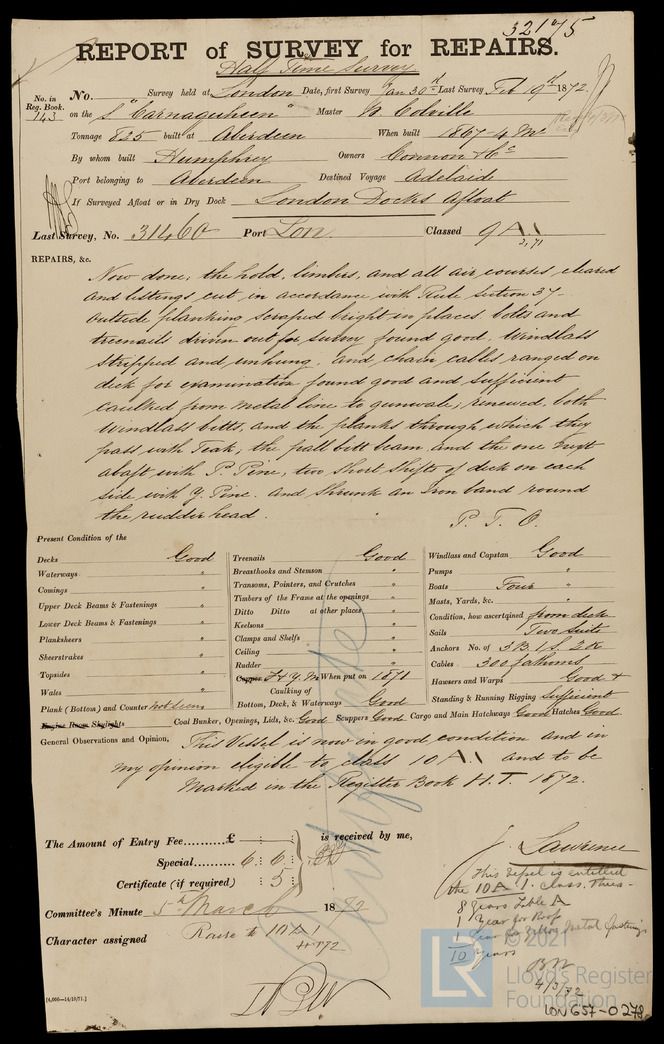 32175
REPORT of SURVEY for REPAIRS.
Half Time Survey
No. in Reg. Book. 143
No. Survey held at London Date, first Survey Jan 30th Last Survey, Feb 19th 1872.
on the S "Carnaquheen" Master N. Colville
Tonnage 825 built at Aberdeen When built 1867 4 Mo
By whom built Humphrey Owners Connon & Co
Port belonging to Aberdeen Destined Voyage Adelaide
If Surveyed Afloat or in Dry Dock London Docks Afloat
Last Survey, No. 31460 Port Lon. Classed 9 A.1.
2,71
REPAIRS, &c.
Now done, the hold, limbers, and all air courses, cleared
and listings cut in accordance with Rule Section 37-
Outside planking scraped bright in places, bolts and
treenails driven out for survey found good. Windlass
stripped and unhung, and chain cables ranged on
deck for examination found good and sufficient
Caulked from metal line to gunwale; renewed, both
windlass bitts, and the planks through which they
pass with Teak, the pall bitt beam and the one next
abaft with P. Pine, two short shifts of deck on each
side with Y. Pine. and shrunk an Iron band round
the rudder head.
P. T. O.
Present Condition of the
Decks Good
Waterways "
Comings "
Upper Deck Beams & Fastenings "
Lower Deck Beams & Fastenings "
Planksheers "
Sheerstrakes "
Topsides "
Wales "
Plank (Bottom) and Counter not seen
Engine Room Skylights
Treenails Good
Breasthooks and Stemson "
Transoms, Pointers, and Crutches "
Timbers of the Frame at the openings "
Ditto Ditto at other places "
Keelsons "
Clamps and Shelfs "
Ceiling "
Rudder "
Copper Y. M When put on 1871
Caulking of
Bottom, Deck, & Waterways Good
Windlass and Capstan Good
Pumps "
Boats Four "
Masts, Yards, &c. "
Condition, how ascertained from deck
Sails Two suits
Anchors No. of 3 B. 1 S. 2 K
Cables 300 fathoms
Hawsers and Warps Good &
Standing & Running Rigging Sufficient
Coal Bunker, Openings, Lids, &c. Good Scuppers Good Cargo and Main Hatchways Good Hatches Good
General Observations and Opinion, This Vessel is now in good condition and in
my opinion eligible to class 10 A.1 and to be
Marked in the Register Book H.T. 1872.
The Amount of Entry Fee £ : : is received by me,
Special 6 : 6 :
Certificate (if required) : 5 :
J. Lawrence
Committee's Minute 5th March 1872
Character assigned Raise to 10 A 1
HT 72
This Vessel is entitled
the 10 A 1. class. Thus-
8 years Table A
1 Year for Roof
1 Year for Yellow Metal fastenings
10 years
4/3/72
[4,000—14/10/71.]
© 2021
LR
Lloyd's Register
Foundation
LON 657-0278